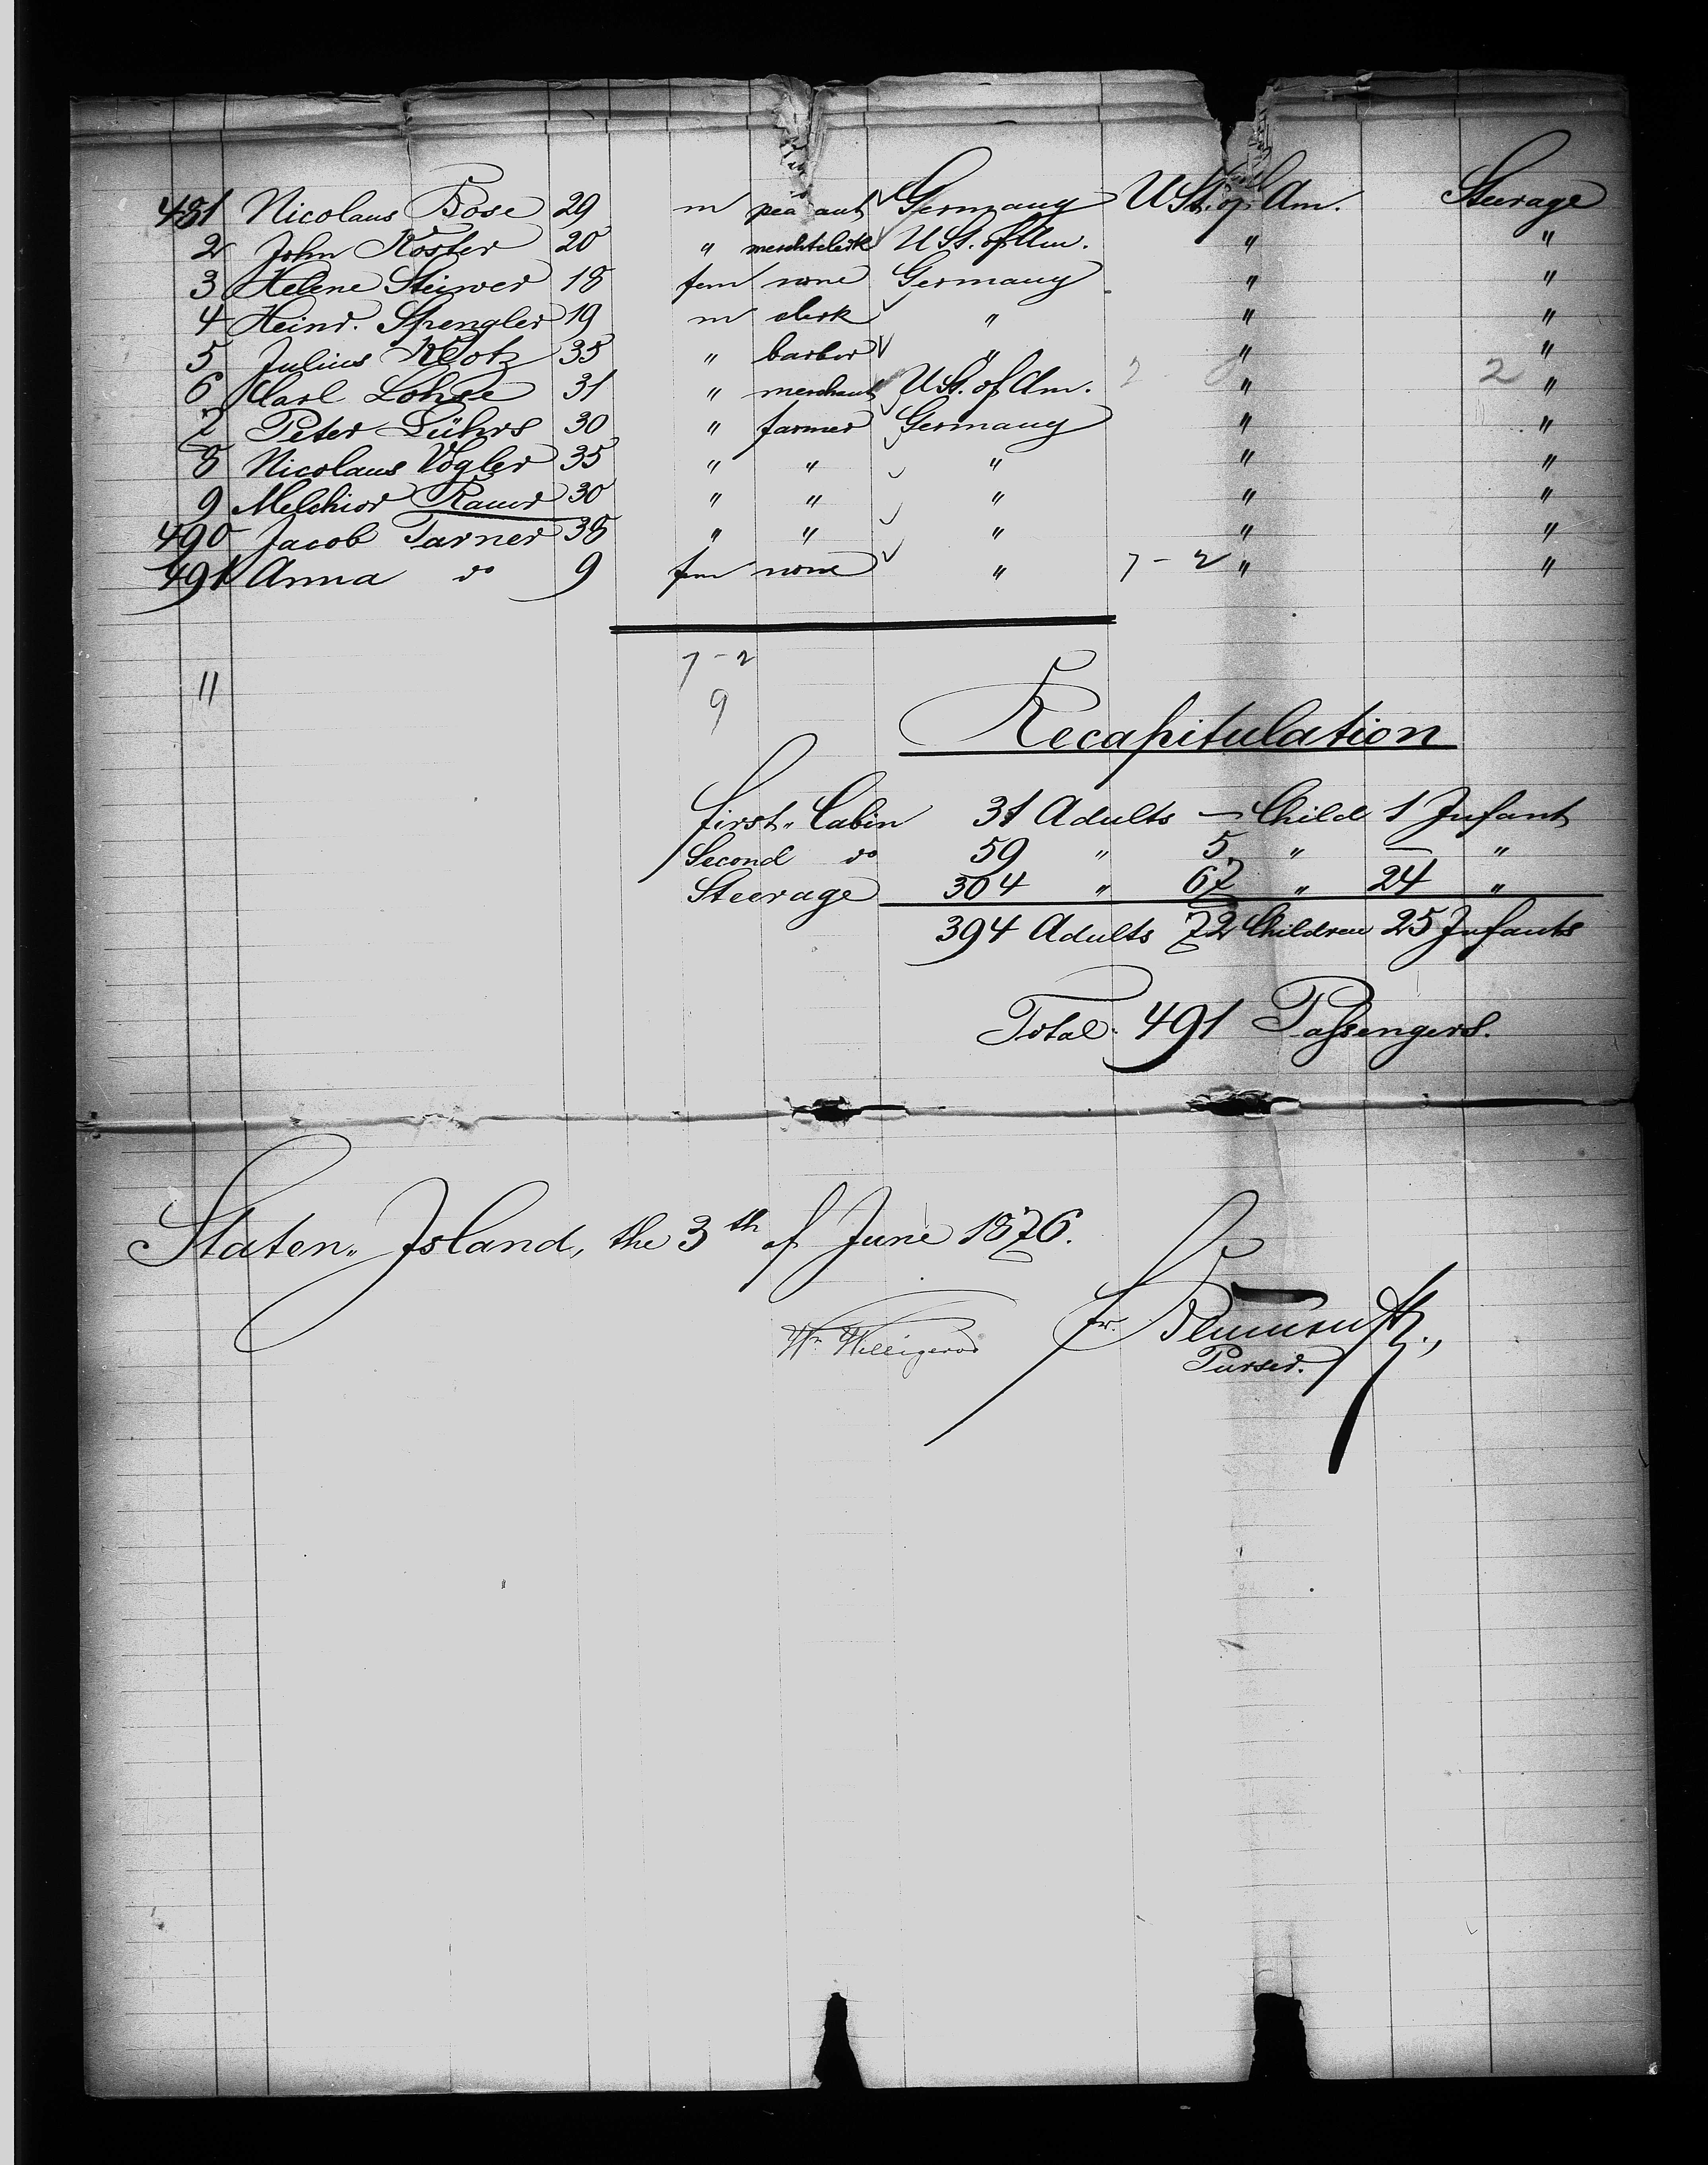 481 Nicolaus Bose 29 m peasant Germany U St. of Am. Steerage
2 John Köster 20 " merchtclerk U St. of Am. " "
3 Helene Stüwer 18 fem none Germany " "
4 Heinr. Spengler 19 m clerk " " "
5 Julius Klotz 35 " barber " " "
6 Carl Lohse 31 " merchant U St. of Am. " 2 "
7 Peter Lührs 30 " farmer Germany " "
8 Nicolaus Vogler 35 " " " " "
9 Melchior Rauer 30 " " " " "
490 Jacob Tarner 38 " " " " "
491 Anna do 9 fem none " 7-2 " "
7-2
11
9
Recapitulation
First-Cabin 31 Adults — Child 1 Infant
Second do 59 " 5 " — "
Steerage 304 " 67 " 24 "
394 Adults 72 Children 25 Infants
Total: 491 Passengers.
Staten-Island, the 3th of June 1876.
Willigerod
Purser.